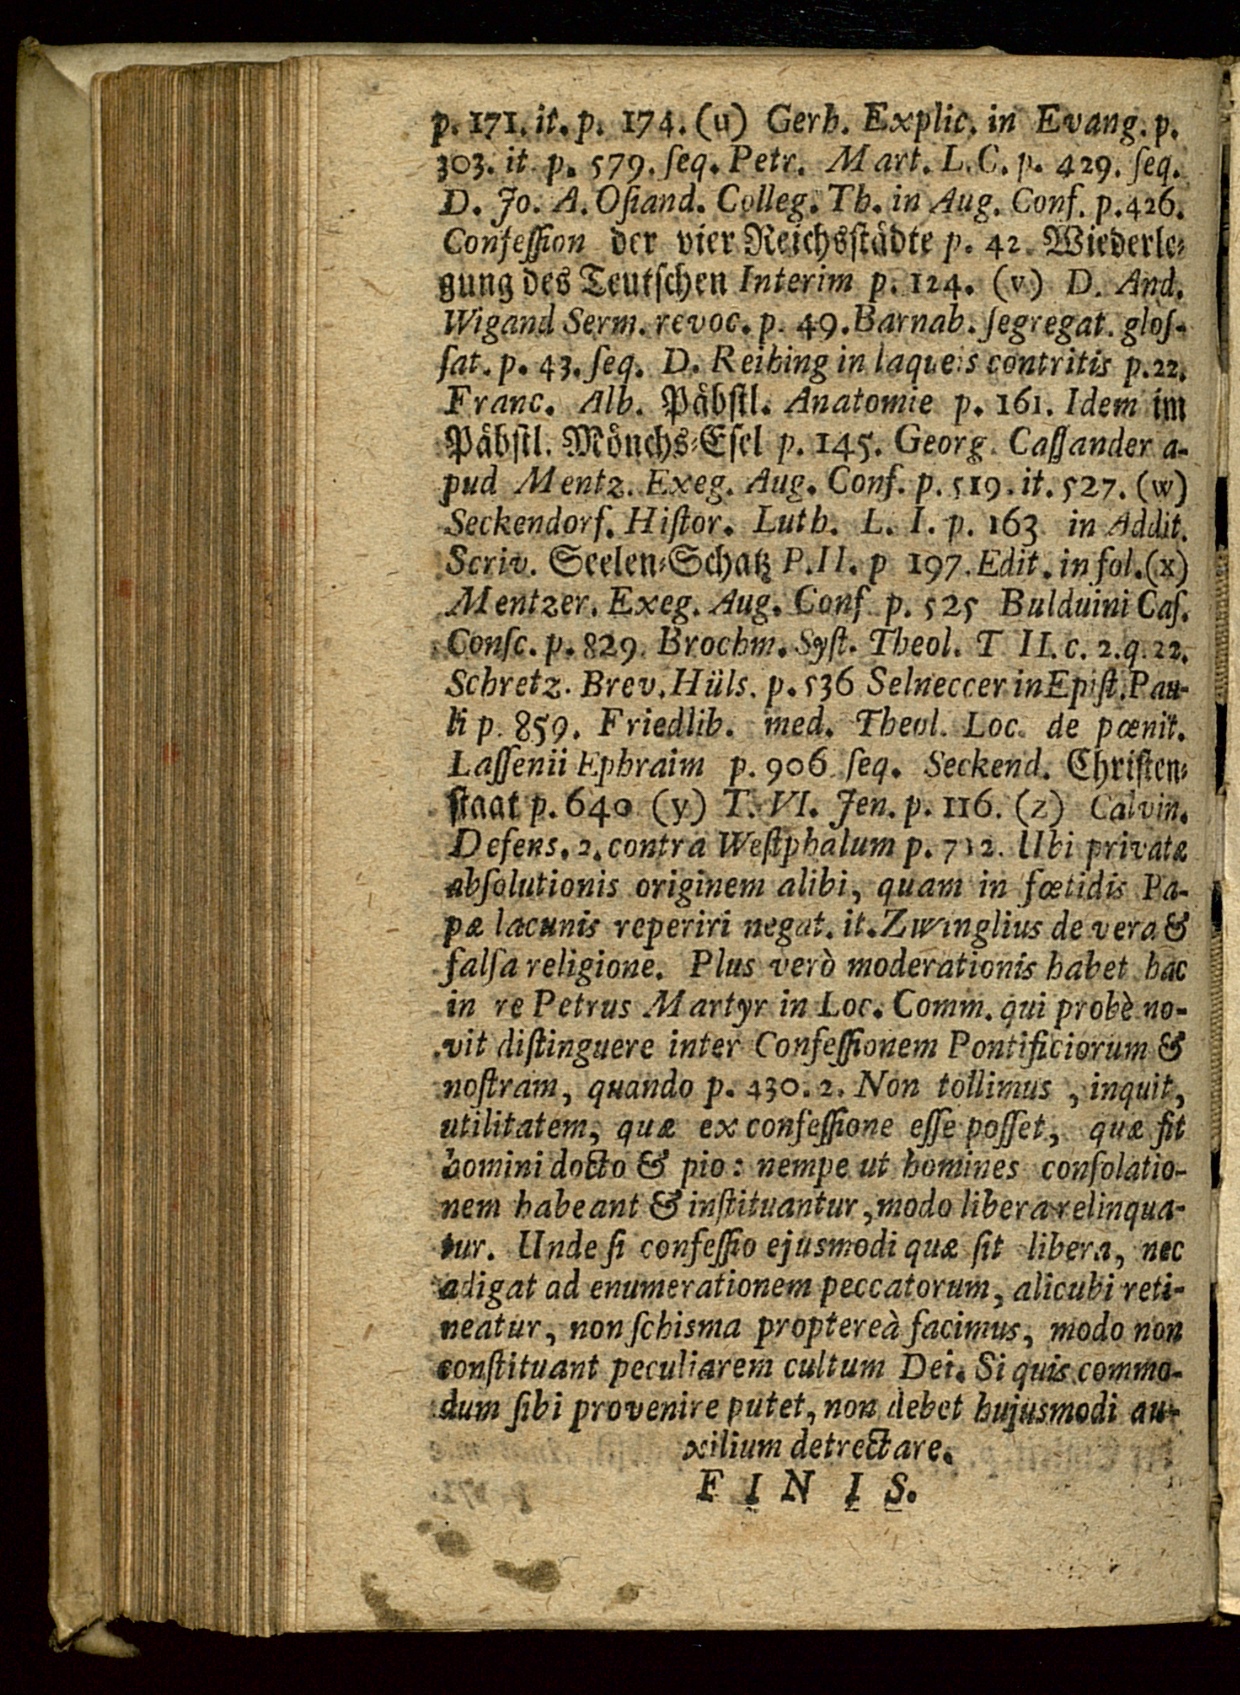 p. 171. it. p. 174. (u) Gerh. Explic. in Evang. p.
303. it. p. 579. ſeq. Petr. Mart. L. C. p. 429. ſeq.
D. Jo. A. Oſiand. Colleg. Th. in Aug. Conf. p. 426.
Confeſſion der vier Reichsſtådte p. 42. Wiederle-
gung des Teutſchen Interim p. 124. (v) D. And.
Wigand Serm. revoc. p. 49. Barnab. ſegregat. gloſ-
ſat. p. 43. ſeq. D. Reihing in laqueis contritis p. 22.
Franc. Alb. Påbſtl. Anatomie p. 161. Idem im
Påbſtl. Mönchs-Eſel p. 145. Georg. Caſſander a-
pud Mentz. Exeg. Aug. Conf. p. 519. it. 527. (w)
Seckendorf. Hiſtor. Luth. L. I. p. 163 in Addit.
Scriv. Seelen-Schatz P. II. p 197. Edit. in fol. (x)
Mentzer. Exeg. Aug. Conf. p. 525 Bulduini Caſ.
Conſc. p. 829. Brochm. Syſt. Theol. T II. c. 2. q. 22.
Schretz. Brev. Hüls. p. 536 Selneccer in Epiſt. Pau-
li p. 859. Friedlib. med. Theol. Loc. de pœnit.
Laſſenii Ephraim p. 906 ſeq. Seckend. Chriſten-
ſtaat p. 640 (y) T. VI. Jen. p. 116. (z) Calvin.
Defens. 2. contra Weſtphalum p. 712. Ubi privatæ
abſolutionis originem alibi, quam in fœtidis Pa-
pæ lacunis reperiri negat. it. Zwinglius de vera &
falſa religione. Plus verò moderationis habet hac
in re Petrus Martyr in Loc. Comm. qui probè no-
vit diſtinguere inter Confeſſionem Pontificiorum &
noſtram, quando p. 430. 2. Non tollimus, inquit,
utilitatem, quæ ex confeſſione eſſe poſſet, quæ fit
homini docto & pio: nempe ut homines conſolatio-
nem habeant & inſtituantur, modo libera relinqua-
tur. Unde ſi confeſſio ejusmodi quæ ſit libera, nec
adigat ad enumerationem peccatorum, alicubi reti-
neatur, non ſchisma proptereà facimus, modo non
conſtituant peculiarem cultum Dei. Si quis commo-
dum ſibi provenire putet, non debet hujusmodi au-
xilium detrectare.
FINIS.